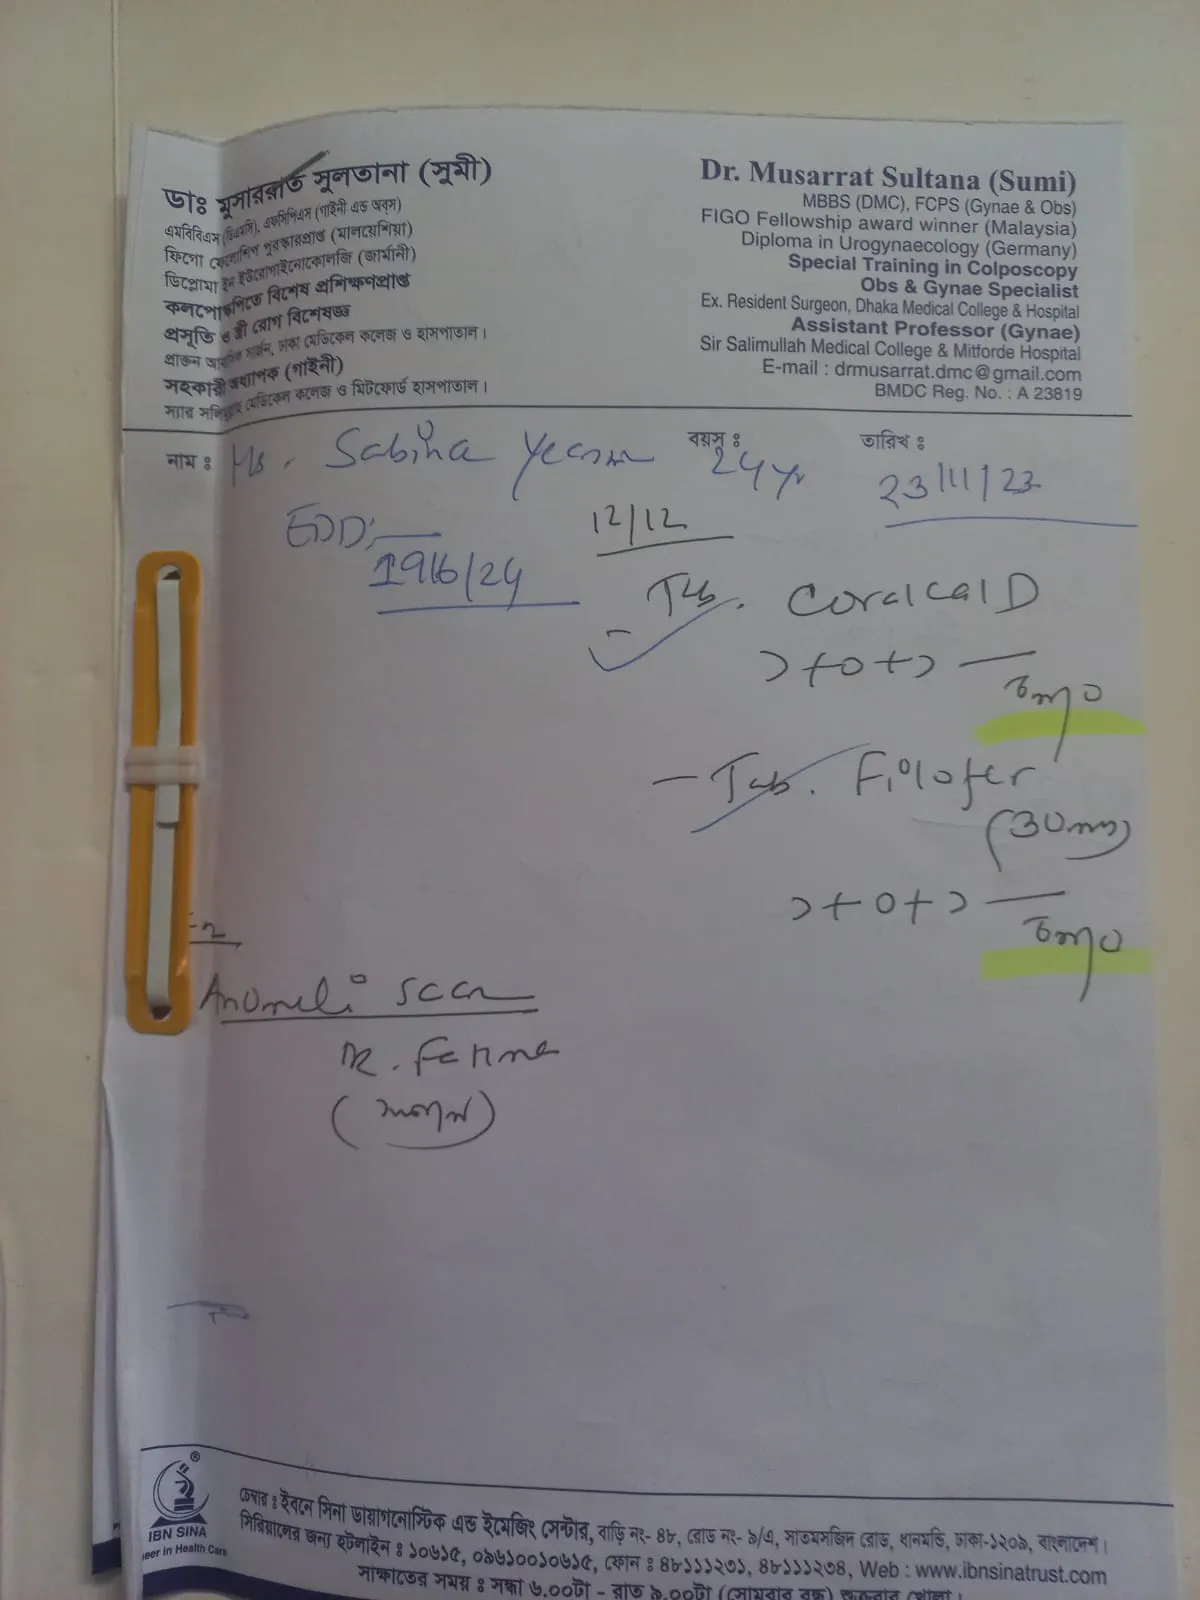 ডাঃ মুসাররাত সুলতানা (সুমী)
এমবিবিএস (ডিএমসি), এফসিপিএস (গাইনী এন্ড অবস)
ফিগো ফেলোশিপ পুরস্কারপ্রাপ্ত (মালয়েশিয়া)
ডিপ্লোমা ইন ইউরোগাইনোকোলজি (জার্মানী)
কলপোস্কপিতে বিশেষ প্রশিক্ষণপ্রাপ্ত
প্রসূতি ও স্ত্রী রোগ বিশেষজ্ঞ
প্রাক্তন আবাসিক সার্জন, ঢাকা মেডিকেল কলেজ ও হাসপাতাল।
সহকারী অধ্যাপক (গাইনী)
স্যার সলিমুল্লাহ মেডিকেল কলেজ ও মিটফোর্ড হাসপাতাল।
Dr. Musarrat Sultana (Sumi)
MBBS (DMC), FCPS (Gynae & Obs)
FIGO Fellowship award winner (Malaysia)
Diploma in Urogynaecology (Germany)
Special Training in Colposcopy
Obs & Gynae Specialist
Ex. Resident Surgeon, Dhaka Medical College & Hospital
Assistant Professor (Gynae)
Sir Salimullah Medical College & Mitforde Hospital
E-mail : drmusarrat.dmc@gmail.com
BMDC Reg. No. : A 23819
নাম : Sabiha বয়স : 24 yr তারিখ : 23/11/23
EDD:
19/6/24
12/12
Tab. Coralcal D
১+০+১
Tab. Filofer
(30
১+০+১
Anomeli scan
IBN SINA
চেম্বার : ইবনে সিনা ডায়াগনোস্টিক এন্ড ইমেজিং সেন্টার, বাড়ি নং- ৪৮, রোড নং- ৯/এ, সাতমসজিদ রোড, ধানমন্ডি, ঢাকা-১২০৯, বাংলাদেশ।
সিরিয়ালের জন্য হটলাইন : ১০৬১৫, ০৯৬১০০১০৬১৫, ফোন : ৪৮১১১২৩১, ৪৮১১১২৩৪, Web : www.ibnsinatrust.com
সাক্ষাতের সময় : সন্ধা ৬.০০টা - রাত ৯.০০টা (সোমবার বন্ধ)